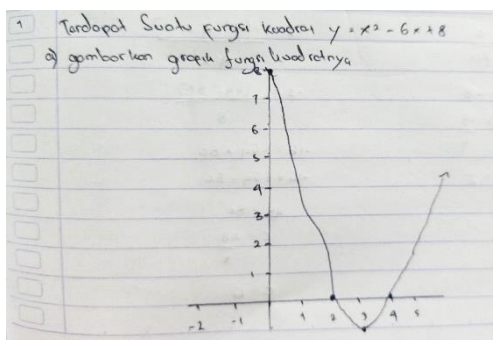 1 Terdapat Suatu fungsi kuadrat y = x² - 6x + 8
a) gambarkan grafik fungsi kuadratnya
8
7
6
5
4
3
2
1
-2 -1 1 2 3 4 5